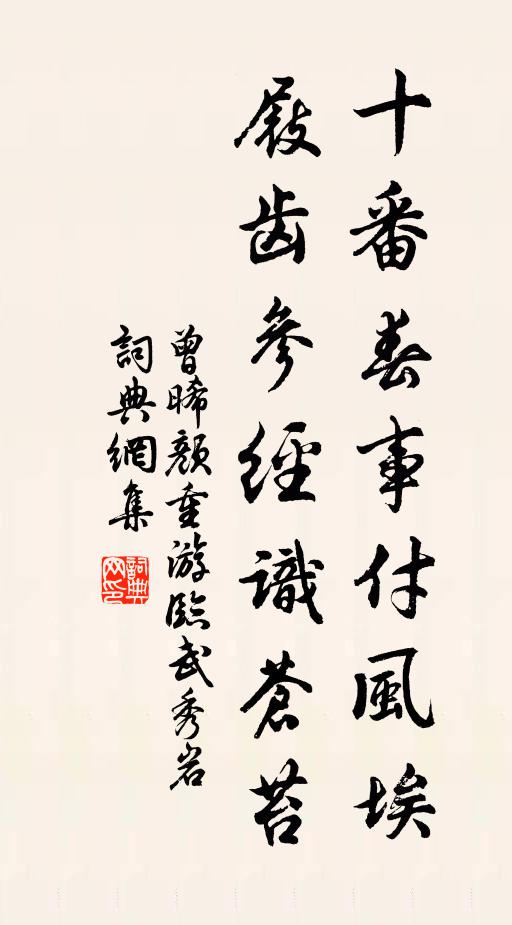 十番春事付風埃
屐齒參經識蒼苔
曾晞顏重游臨武秀岩
詞典網集
詞典网印